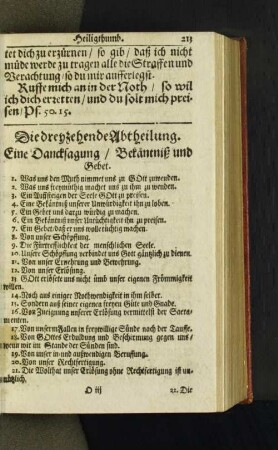 Heiligthumb. 213
tet dich zu erzürnen / so gib / daß ich nicht
müde werde zu tragen alle die Straffen und
Verachtung / so du mir aufferlegst.
Ruffe mich an in der Noth / so wil
ich dich erretten / und du solt mich prei-
sen / Ps. 50. 15.
Die dreyzehende Abtheilung.
Eine Dancksagung / Bekäntniß und
Gebet.
1. Was uns den Muth nimmet uns zu GOtt zuwenden.
2. Was uns freymüthig machet uns zu ihm zu wenden.
3. Ein Auffsteigen der Seele GOtt zu preisen.
4. Eine Bekäntniß unserer Unwürdigkeit ihn zu loben.
5. Ein Gebet uns darzu würdig zu machen.
6. Ein Bekäntniß unser Untüchtigkeit ihn zu preisen.
7. Ein Gebet / daß er uns wolle tüchtig machen.
8. Von unser Schöpffung.
9. Die Fürtreflichkeit der menschlichen Seele.
10. Unsere Schöpffung verbindet uns Gott gäntzlich zu dienen.
11. Von unser Ernehrung und Bewehrung.
12. Von unser Erlösung.
13. GOtt erlöset uns nicht umb unser eigenen Frömmigkeit
willen.
14. Noch aus einiger Nothwendigkeit in ihm selber.
15. Sondern auß seiner eigenen freyen Güte und Gnade.
16. Von Zueignung unserer Erlösung vermittelst der Sacra-
menten.
17. Von unserm Fallen in freywillige Sünde nach der Tauffe.
18. Von GOttes Erduldung und Beschirmung gegen uns /
wenn wir im Stande der Sünden sind.
19. Von unser in- und außwendigen Beruffung.
20. Von unser Rechtfertigung.
21. Die Wolthat unser Erlösung ohne Rechtfertigung ist un-
nützlich.
O iij 22. Die